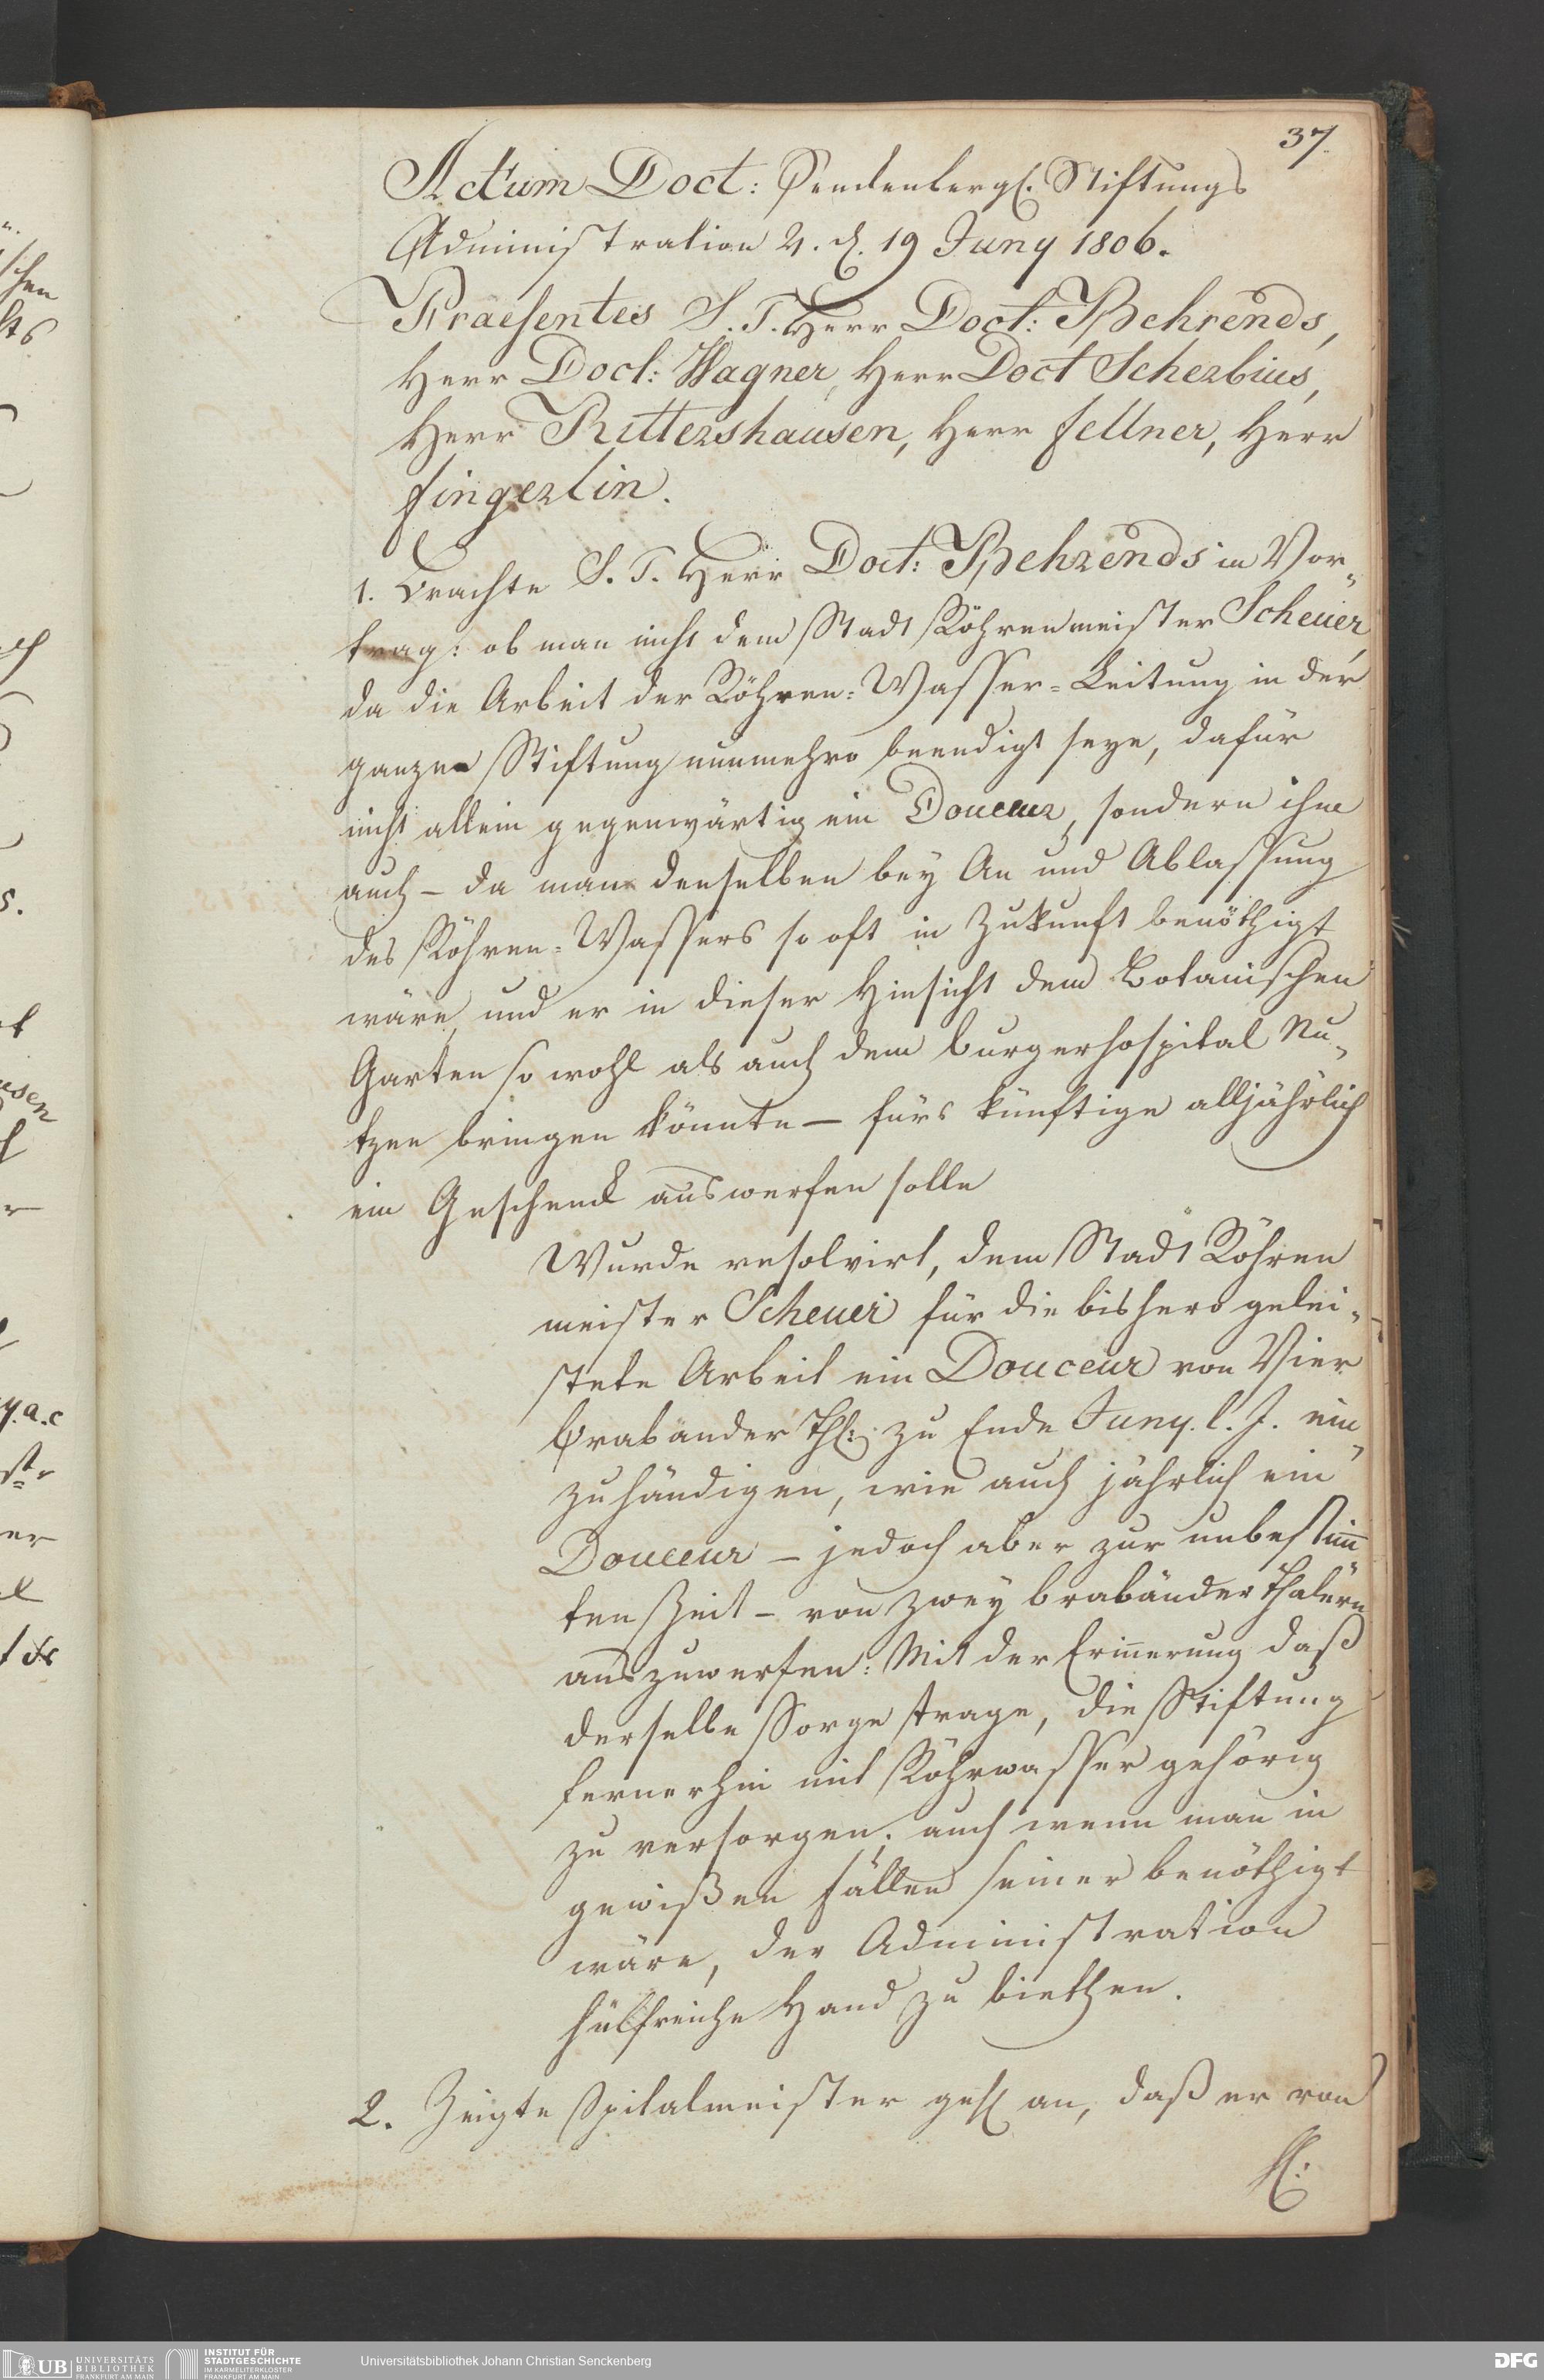 37.
Actum Doct: Senckenbergl. Stiftungs
Administration 4. d. 19 Juny 1806.
Praesentes S. T. Herr Doct: Behrends,
Herr Doct: Wagner, Herr Doct Scherbius,
Herr Rittershausen, Herr Fellner, Herr
Fingerlin.
1. Brachte S. T. Herr Doct: Behrends in Vor„
trag: ob man nicht dem Stadt Röhrenmeister Scheuer,
da die Arbeit der Röhren-Wasser-Leitung in der
ganzen Stiftung nunmehro beendigt seye, dafür
nicht allein gegenwärtig ein Douceur, sondern ihm
auch – da man denselben bey An und Ablassung
des Röhren-Wassers so oft in Zukunft benöthigt
wäre und er in dieser Hinsicht dem Botanischen
Garten so wohl als auch dem Burgerhospital Nu„
tzen bringen könnte – fürs künftige alljährlich
ein Geschenck auswerfen solle
Wurde resolvirt, dem Stadt Röhren
meister Scheuer für die bishero gelei„
stete Arbeit ein Douceur von Vier
Brabänder Thl: zu Ende Juny. l. J. ein„
zuhändigen, wie auch jährlich ein
Douceur – jedoch aber zur unbestim̅
ten Zeit – von zwey brabänder Thalern
auszuwerfen: Mit der Erin̅erung daß
derselbe Sorge trage, die Stiftung
fernerhin mit Röhrwasser gehörig
zu versorgen; auch wenn man in
gewißen Fällen seiner benöthigt
wäre, der Administration
hülfreiche Hand zu biethen.
2. Zeigte Spitalmeister geh an, daß er von
UB UNIVERSITÄTS
BIBLIOTHEK
FRANKFURT AM MAIN
INSTITUT FÜR
STADTGESCHICHTE
IM KARMELITERKLOSTER
FRANKFURT AM MAIN
Universitätsbibliothek Johann Christian Senckenberg
DFG